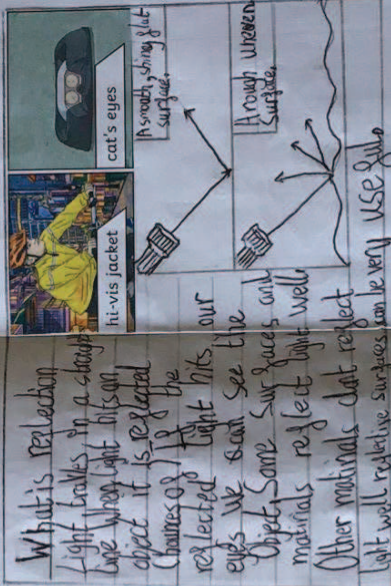 What is reflection
Light travles in a straigh
line when light hits an
object it is reflected
(bounces of) If the
reflected light hits our
eyes we can see the
Object. Some surfaces and
matirials reflect light well.
Other matirials dont reflect
light well reflective surfaces can be very useful.
hi-vis jacket
cat's eyes
A smooth, shiny flat
surface.
A rough uneven
surface.